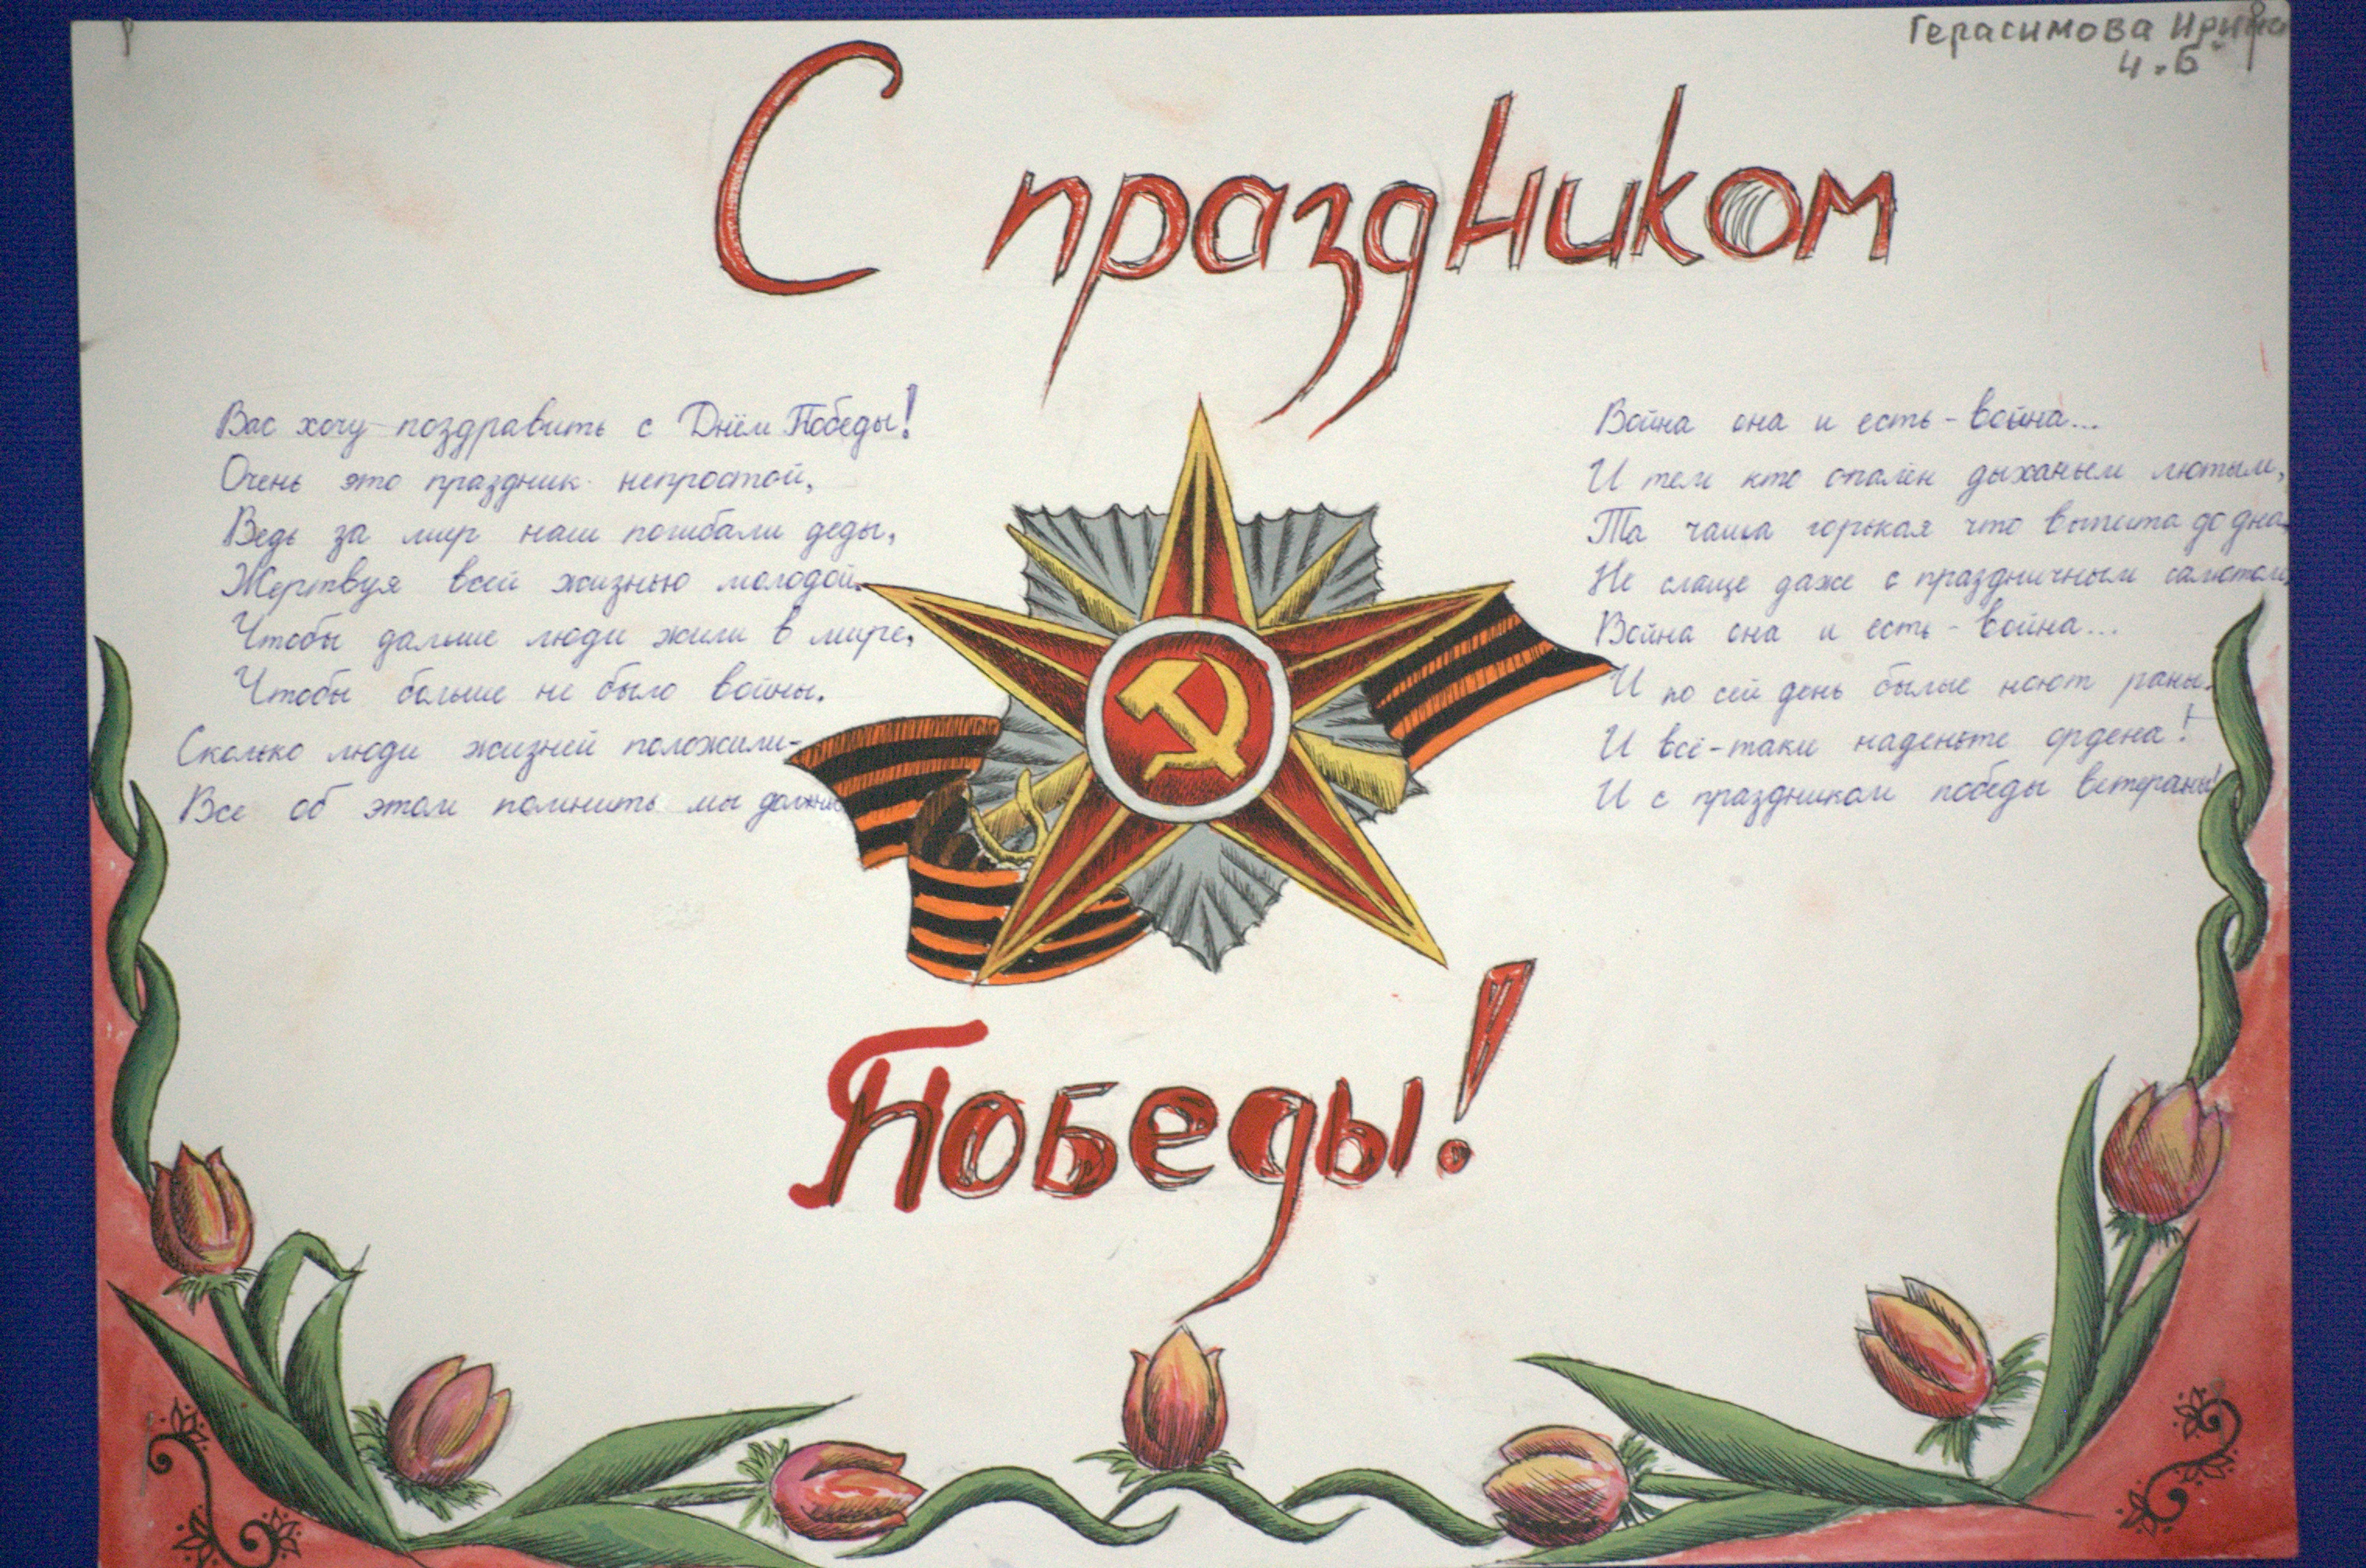 Герасимова Ирина
4 "Б"
С праздником
Вас хочу поздравить с Днём Победы!
Очень это праздник непростой,
Ведь за мир наш погибали деды,
Жертвуя всей жизнью молодой.
Чтобы дальше люди жили в мире,
Чтобы больше не было войны.
Сколько люди жизней положили-
Все об этом помнить мы должны
Война она и есть - война...
И тем кто опалён дыханьем лютым,
Та чаша горькая что выпита до дна,
Не слаще даже с праздничным салютом.
Война она и есть - война...
И по сей день былые ноют раны.
И всё-таки наденьте ордена!
И с праздником победы ветераны!
Победы!